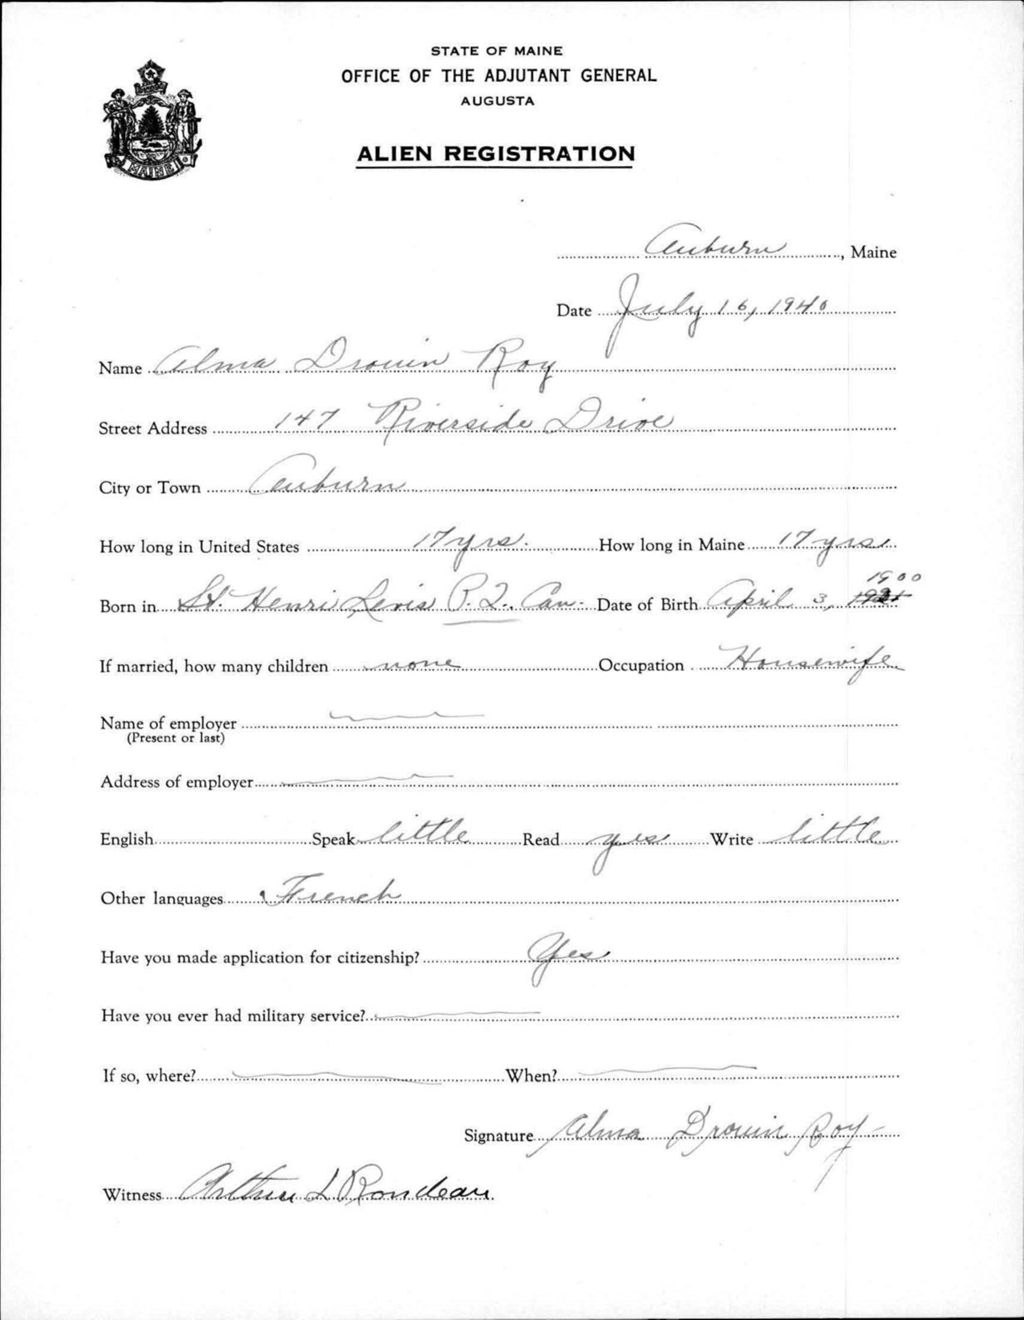 STATE OF MAINE
OFFICE OF THE ADJUTANT GENERAL
AUGUSTA
ALIEN REGISTRATION
MAINE
Auburn, Maine
Date July 16, 1940
Name Alma Drouin Roy
Street Address 147 Riverside Drive
City or Town Auburn
How long in United States 17 yrs. How long in Maine 17 yrs.
1900
Born in St. Henri Levis P.Q. Can. Date of Birth April 3,
If married, how many children none Occupation Housewife
Name of employer
(Present or last)
Address of employer
English Speak little Read yes Write little
Other languages French
Have you made application for citizenship? Yes
Have you ever had military service?
If so, where? When?
Signature Alma Drouin Roy
Witness Arthur L Rondeau